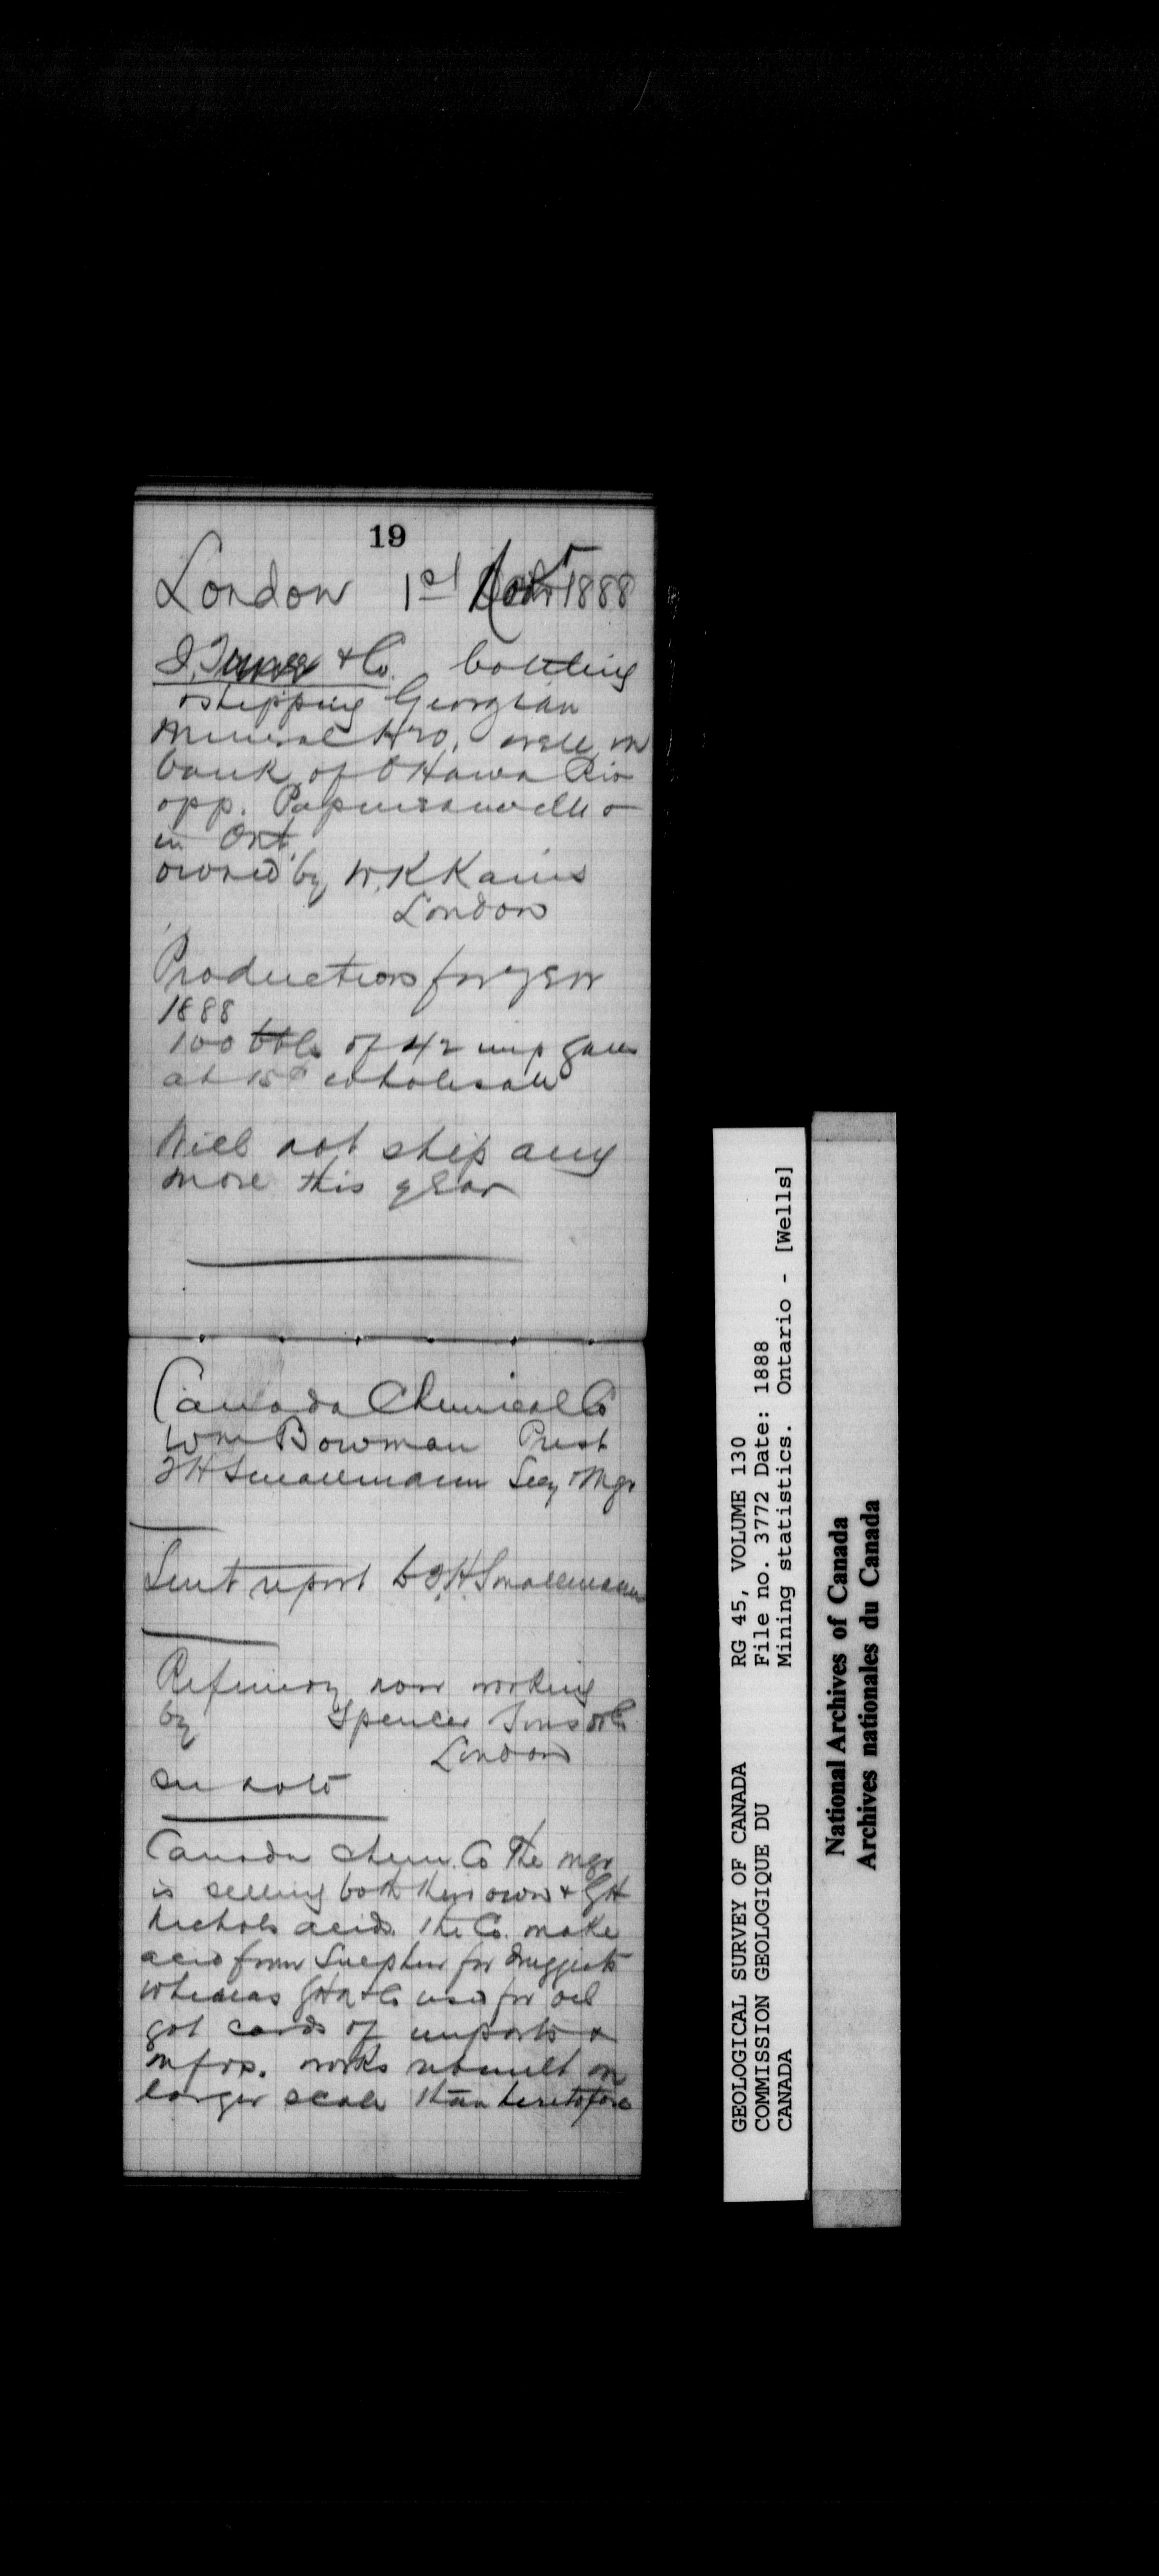 19
London 1st 1888
& Co. bottling
& shipping Georgian
Mineral H2O, well on
bank of Ottawa Riv
opp. Papineauville
in Ont.
owned by W.K Kains
London
Production for year
1888
100 bbls of 42 imp galls
at 15¢ wholesale
Will not ship any
more this year
Canada Chemical Co
Wm Bowman Prest
T H Smallmann Secy & Mgr
Sent report to T.H. Smallmann
Refinery now working
by Spencer Sons & Co
London
see note
Canada Chem. Co The mgr
is selling both their own & GH
Nichols acids. The Co. make
acid from Sulphur for druggists
whereas GHN & Co used for oil
got cards of imports &
mfrs. works rebuilt on
larger scale than heretofore
GEOLOGICAL SURVEY OF CANADA RG 45, VOLUME 130
COMMISSION GEOLOGIQUE DU File no. 3772 Date: 1888
CANADA Mining statistics. Ontario - [Wells]
National Archives of Canada
Archives nationales du Canada